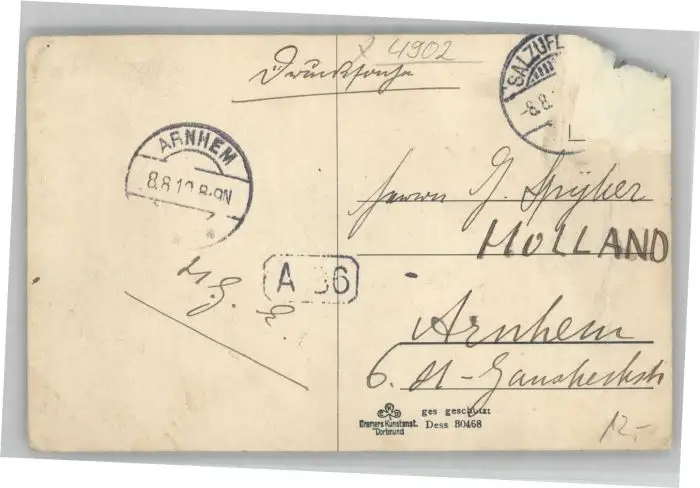 4902
Drucksache
SALZUFL
-8.8.
ARNHEM
8.8.12.8-9N
Herrn G. Spijker
HOLLAND
A 36
Arnhem
6. St-
ges geschützt
Cramers Kunstanst.
Dortmund
Dess 30468
12,-